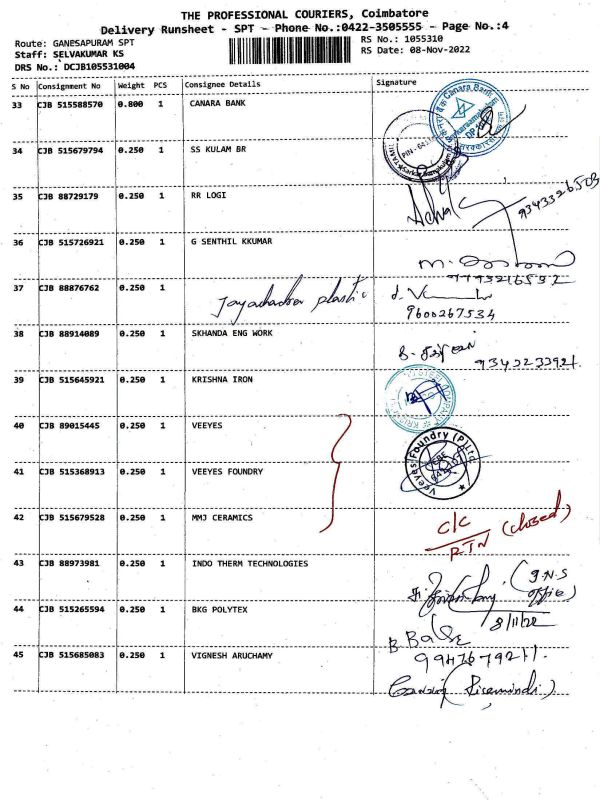 THE PROFESSIONAL COURIERS, Coimbatore
Delivery Runsheet - SPT - Phone No.:0422-3505555 - Page No.:4
Route: GANESAPURAM SPT
RS No.: 1055310
Staff: SELVAKUMAR KS
RS Date: 08-Nov-2022
DRS No.: DCJB105531004
S No Consignment No Weight PCS Consignee Details Signature
33 CJB 515588570 0.800 1 CANARA BANK
Canara Bank
34 CJB 515679794 0.250 1 SS KULAM BR
35 CJB 88729179 0.250 1 RR LOGI
9343326503
36 CJB 515726921 0.250 1 G SENTHIL KKUMAR
37 CJB 88876762 0.250 1 plastic
9600267534
38 CJB 88914089 0.250 1 SKHANDA ENG WORK
39 CJB 515645921 0.250 1 KRISHNA IRON
40 CJB 89015445 0.250 1 VEEYES
41 CJB 515368913 0.250 1 VEEYES FOUNDRY
Veeyes Foundry (P) Ltd
42 CJB 515679528 0.250 1 MMJ CERAMICS
C/C (closed)
RTN
43 CJB 88973981 0.250 1 INDO THERM TECHNOLOGIES
44 CJB 515265594 0.250 1 BKG POLYTEX
8/11/22
45 CJB 515685083 0.250 1 VIGNESH ARUCHAMY